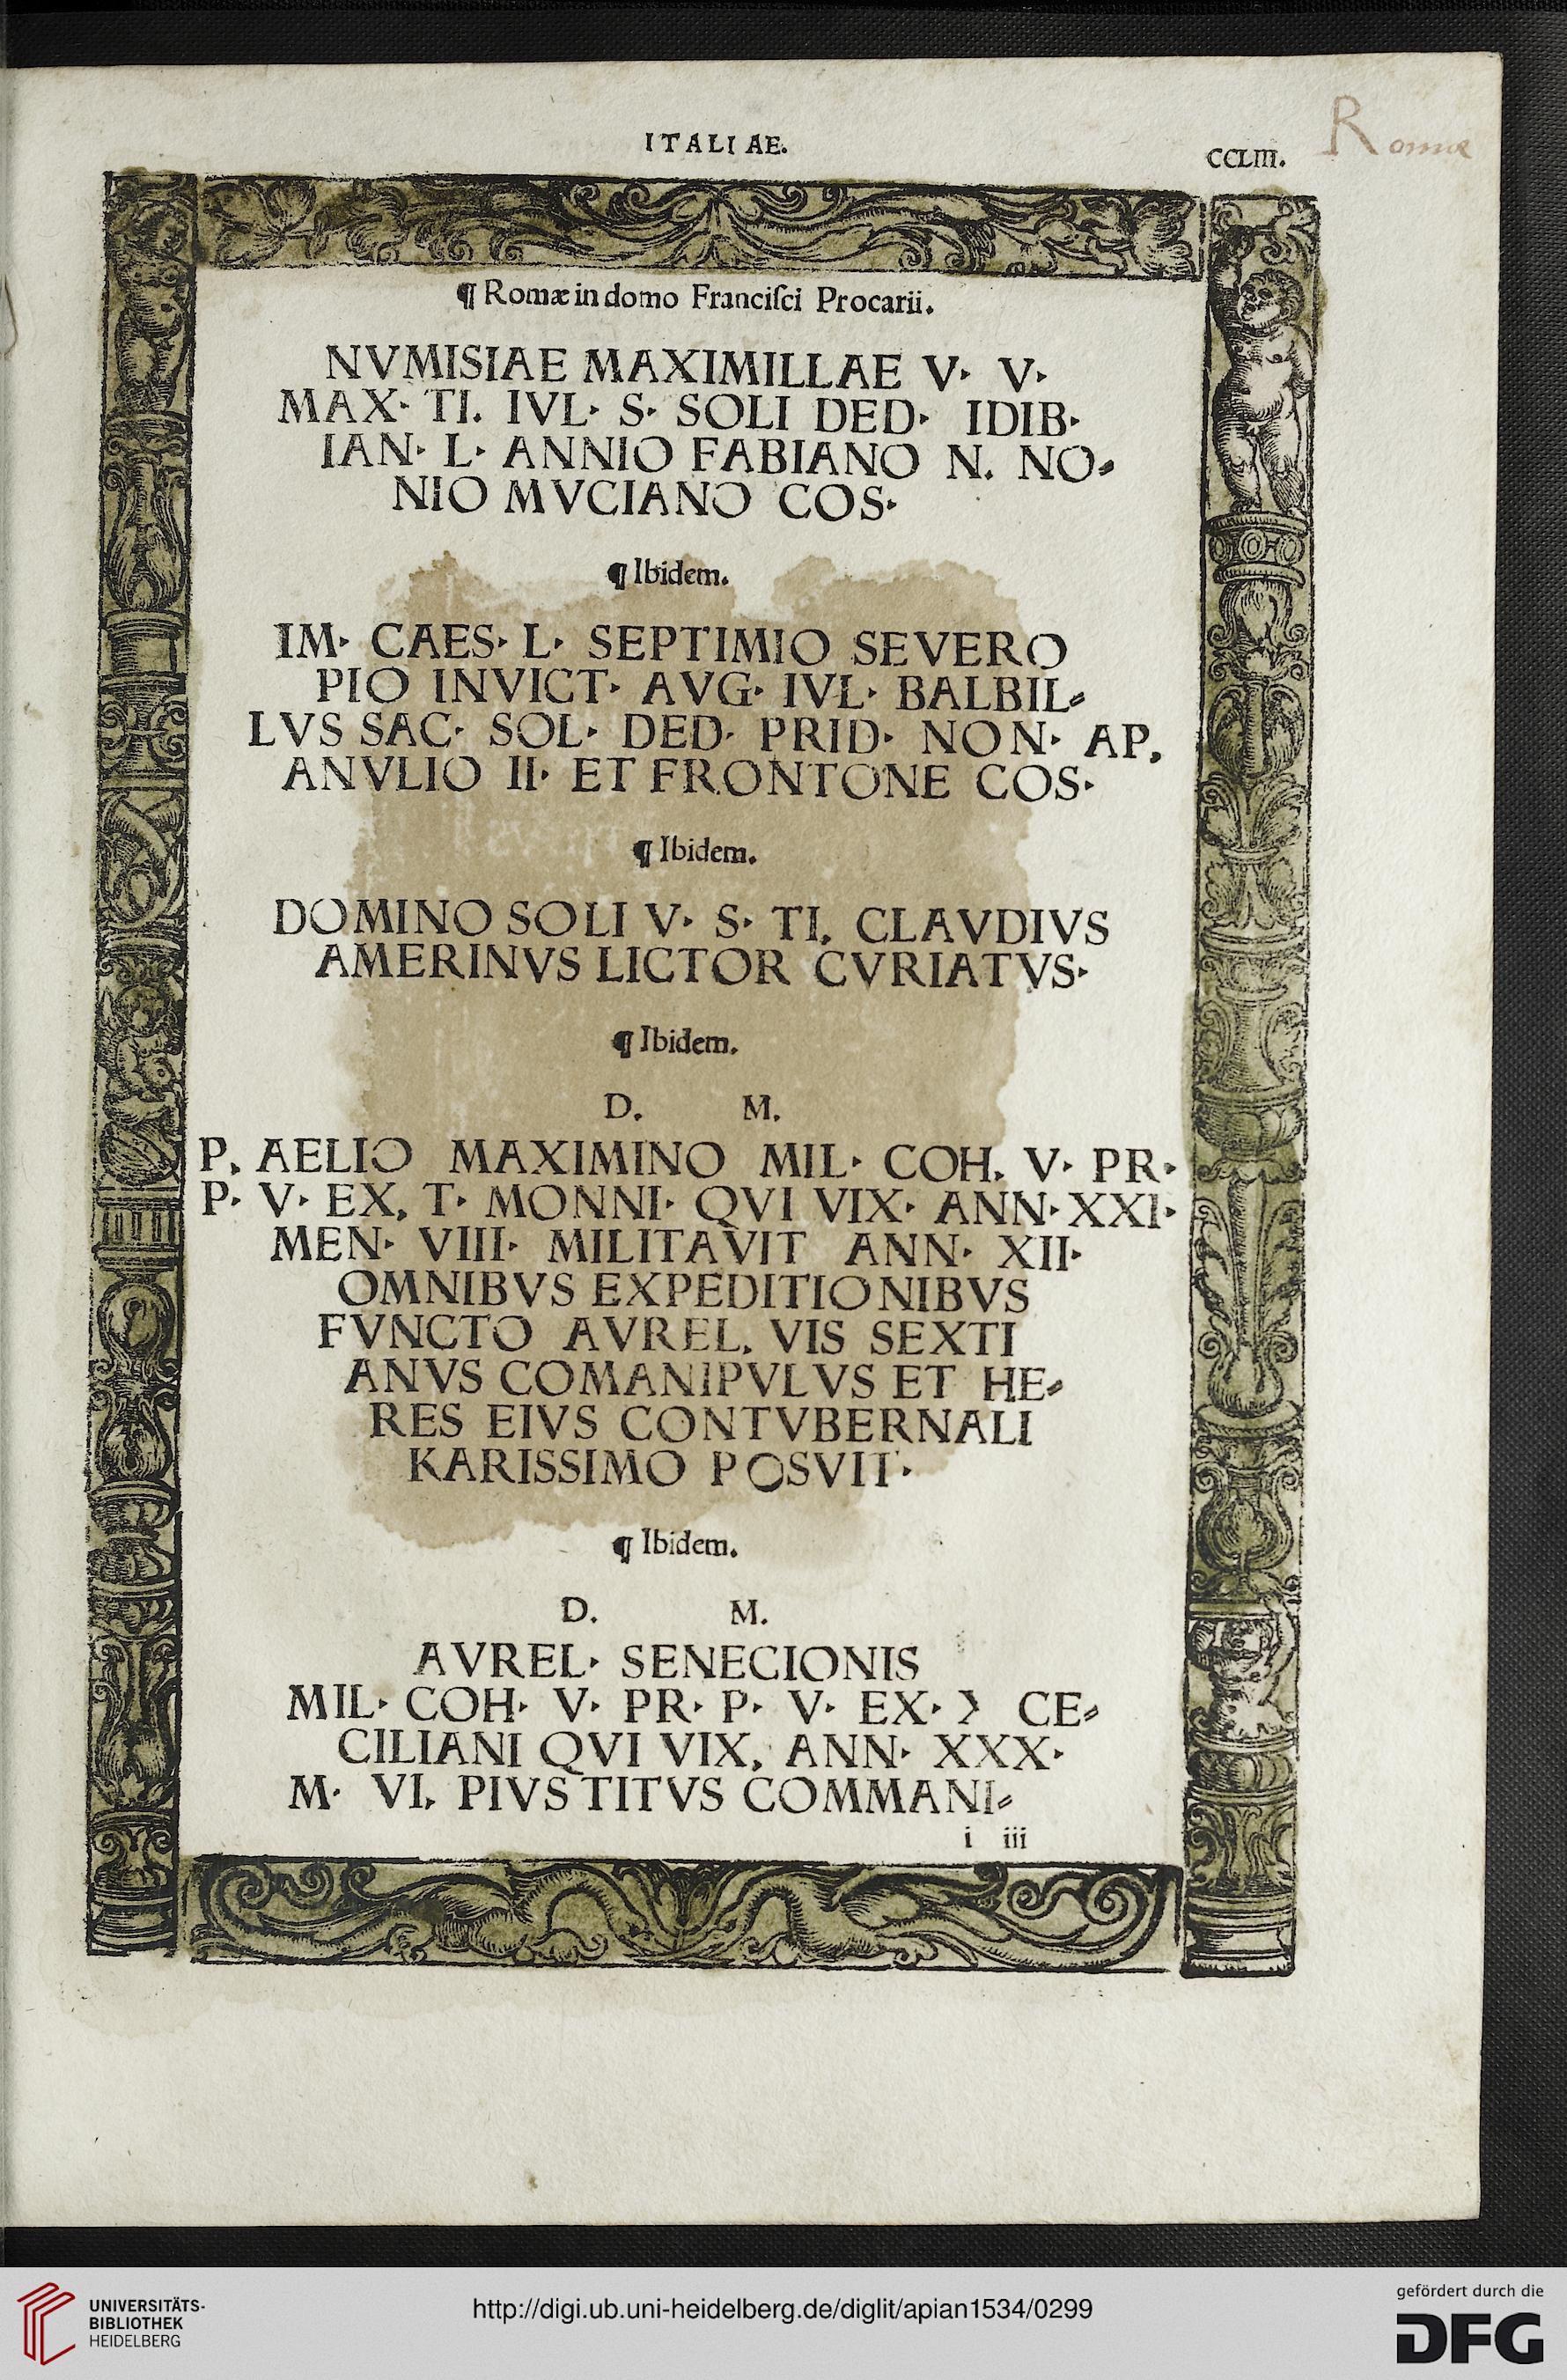 ITALIAE.
CCLIII.
Romæ
¶ Romæ in domo Franciſci Procarii.
NVMISIAE MAXIMILLAE V· V·
MAX· TI. IVL· S· SOLI DED· IDIB·
IAN· L· ANNIO FABIANO N. NO⸗
NIO MVCIANO COS·
¶ Ibidem.
IM· CAES· L· SEPTIMIO SEVERO
PIO INVICT· AVG· IVL· BALBIL⸗
LVS SAC· SOL· DED· PRID· NON· AP.
ANVLIO II· ET FRONTONE COS·
¶ Ibidem.
DOMINO SOLI V· S· TI. CLAVDIVS
AMERINVS LICTOR CVRIATVS·
¶ Ibidem.
D. M.
P. AELIO MAXIMINO MIL· COH. V· PR·
P· V· EX. T· MONNI· QVI VIX· ANN· XXI·
MEN· VIII· MILITAVIT ANN· XII·
OMNIBVS EXPEDITIONIBVS
FVNCTO AVREL. VIS SEXTI
ANVS COMANIPVLVS ET HE⸗
RES EIVS CONTVBERNALI
KARISSIMO POSVIT·
¶ Ibidem.
D. M.
AVREL· SENECIONIS
MIL· COH· V· PR· P· V· EX· 〉 CE⸗
CILIANI QVI VIX. ANN· XXX·
M· VI. PIVS TITVS COMMANI⸗
i iii
UNIVERSITÄTS-
BIBLIOTHEK
HEIDELBERG
http://digi.ub.uni-heidelberg.de/diglit/apian1534/0299
gefördert durch die
DFG